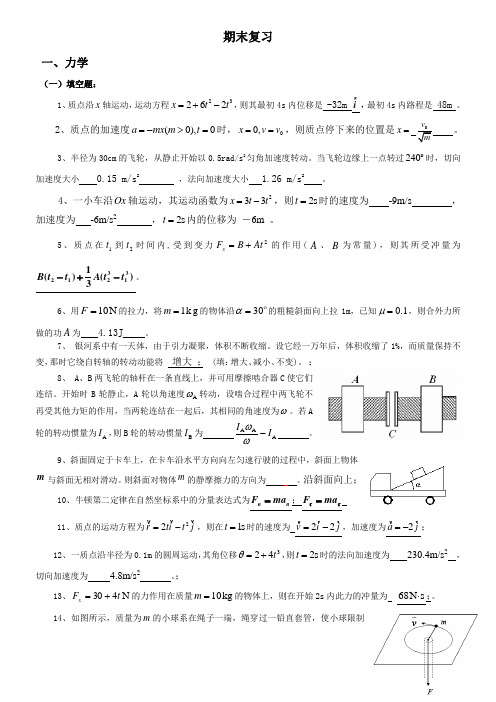 期末复习
一、力学
（一）填空题：
1、质点沿x轴运动，运动方程x=2+6t²−2t³，则其最初4s内位移是 -32m i，最初4s内路程是 48m 。
2、质点的加速度a=−mx(m>0),t=0时，x=0,v=v₀，则质点停下来的位置是x= v₀/√m 。
3、半径为30cm的飞轮，从静止开始以0.5rad/s²匀角加速度转动。当飞轮边缘上一点转过240°时，切向
加速度大小 0.15 m/s² ，法向加速度大小 1.26 m/s² 。
4、一小车沿Ox轴运动，其运动函数为x=3t−3t²，则t=2s时的速度为 -9m/s ，
加速度为 -6m/s² ，t=2s内的位移为 －6m 。
5、质点在t₁到t₂时间内,受到变力Fₓ=B+At²的作用（A、B为常量），则其所受冲量为
B(t₂−t₁)+1/3A(t₂³−t₁³)。
6、用F=10N的拉力，将m=1kg的物体沿α=30°的粗糙斜面向上拉1m，已知μ=0.1，则合外力所
做的功A为 4.13J 。
7、 银河系中有一天体，由于引力凝聚，体积不断收缩。设它经一万年后，体积收缩了1%，而质量保持不
变,那时它绕自转轴的转动动能将 增大 ； (填:增大、减小、不变)。；
8、 A、B两飞轮的轴杆在一条直线上，并可用摩擦啮合器C使它们
连结。开始时B轮静止，A轮以角速度ω_A转动，设啮合过程中两飞轮不
再受其他力矩的作用，当两轮连结在一起后，其相同的角速度为ω。若A
轮的转动惯量为I_A,则B轮的转动惯量I_B为 I_Aω_A/ω−I_A 。
A
B
C
9、斜面固定于卡车上，在卡车沿水平方向向左匀速行驶的过程中，斜面上物体
m 与斜面无相对滑动。则斜面对物体m的静摩擦力的方向为 。沿斜面向上；
α
10、牛顿第二定律在自然坐标系中的分量表达式为Fₙ=maₙ；F_τ=ma_τ
11、质点的运动方程为r=2ti−t²j，则在t=1s时的速度为 v=2i−2j，加速度为a=−2j；
12、一质点沿半径为0.1m的圆周运动,其角位移θ=2+4t³,则t=2s时的法向加速度为 230.4m/s²，
切向加速度为 4.8m/s² 。；
13、Fₓ=30+4t N的力作用在质量m=10kg的物体上，则在开始2s内此力的冲量为 68N·s i。
14、如图所示，质量为m的小球系在绳子一端，绳穿过一铅直套管，使小球限制
v
m
r
F